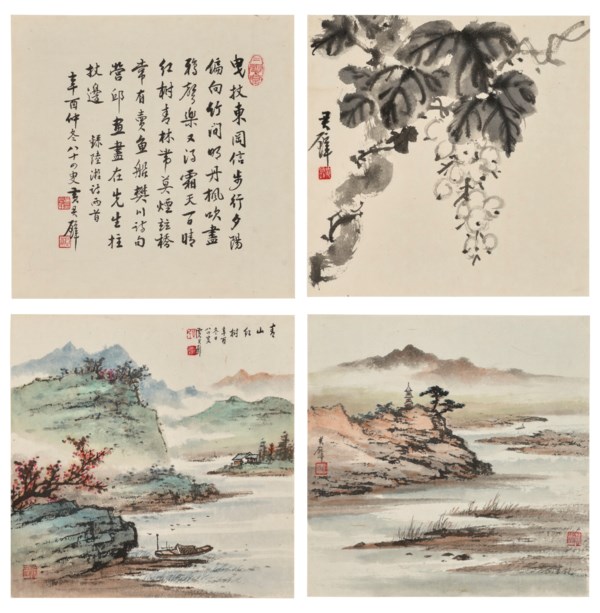 曳杖東岡信步行夕陽
偏向竹間明丹楓吹盡
鴉聲樂又得霜天一日晴
紅樹青林帶莫煙竝橋
常有賣魚船樊川詩句
營邱畫盡在先生拄
杖邊 錄陸游詩兩首
辛酉仲冬八十四叟黃君璧
君璧
青山紅樹
辛酉
冬日
君璧